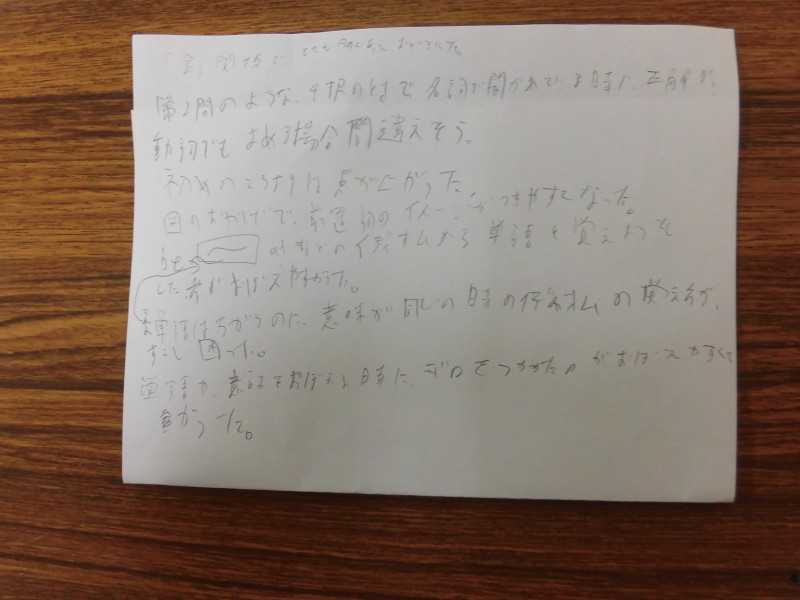 第2問のような、4択の中で名詞が聞かれている時に、正解が、
動詞でもよめる場合間違えそう。
初めのころよりは点が上がった。
図のおかげで、前置詞のイメージがつきやすくなった。
などのイディオムから単語を覚えようと
した方がおぼえやすかった。
単語はちがうのに、意味が同じの時のイディオムの覚え方が、
すこし困った。
単語の意味をおぼえる時に、ゴロをつかったのがおぼえやすくて
良かった。